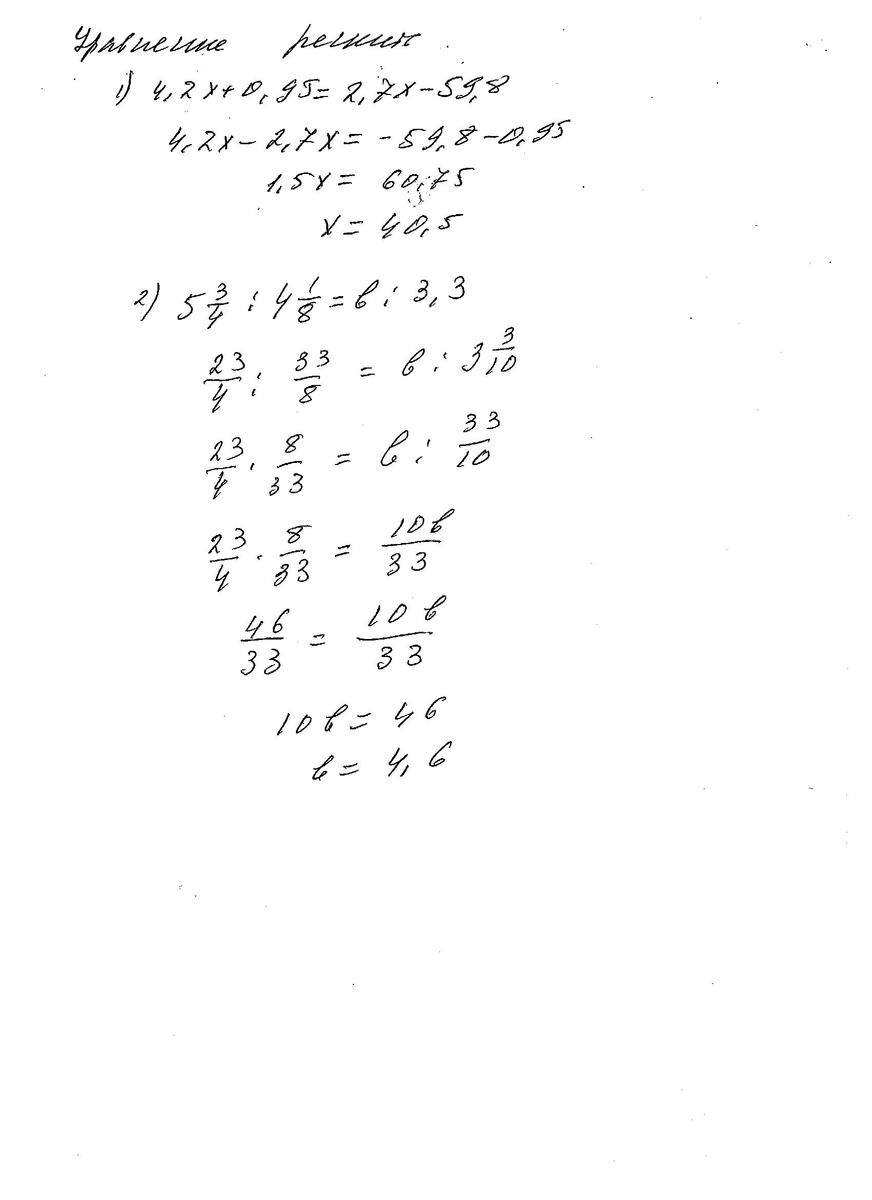 Уравнение решит.
1) 4,2x+0,95=2,7x-59,8
4,2x-2,7x=-59,8-0,95
1,5x= 60,75
x= 40,5
2) 5 3/4 : 4 1/8 = b : 3,3
23/4 : 33/8 = b : 3 3/10
23/4 · 8/33 = b : 33/10
23/4 · 8/33 = 10b/33
46/33 = 10b/33
10b= 46
b= 4,6